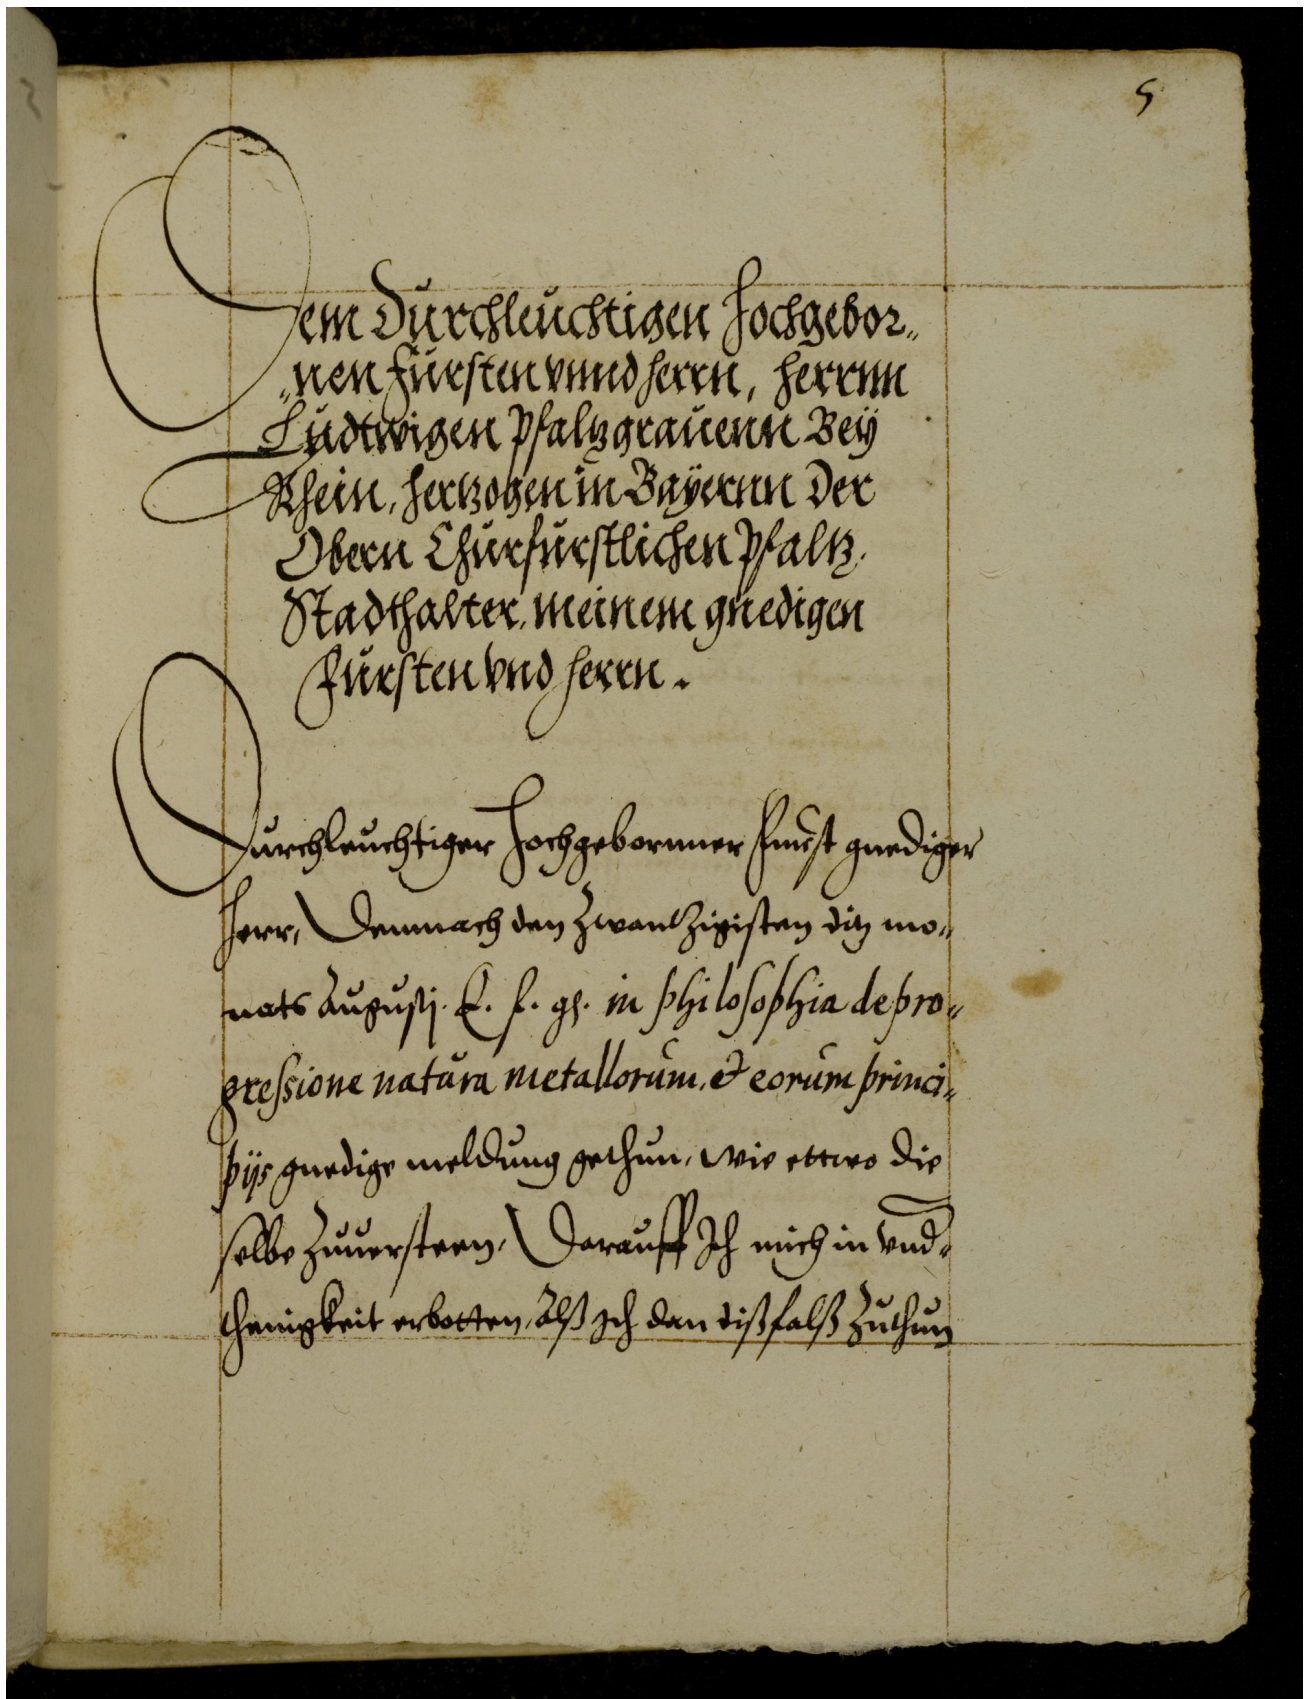 5
Dem Durchleuchtigen Hochgebor„
„nen Fürsten vnnd Herrn, Herrnn
Ludtwigen Pfaltzgrauenn Bey
Rhein, Hertzogen in Bayernn Der
Obern Churfürstlichen Pfaltz.
Stadthalter, meinem gnedigen
Fürsten vnd Herrn.
Durchleuchtiger Hochgebornner Furst gnediger
Herr, Demnach den Zwantzigisten ditz mo„
nats Augustj. E. f. g. in philosophia de pro„
gressione natura metallorum, et eorum princi„
pijs gnedige meldung gethun, wie ettwo die
selbe Zuuersteen, Darauff Ich mich in vnd„
thenigkeit erbotten, Alß Ich dan dißfalß Zuthun